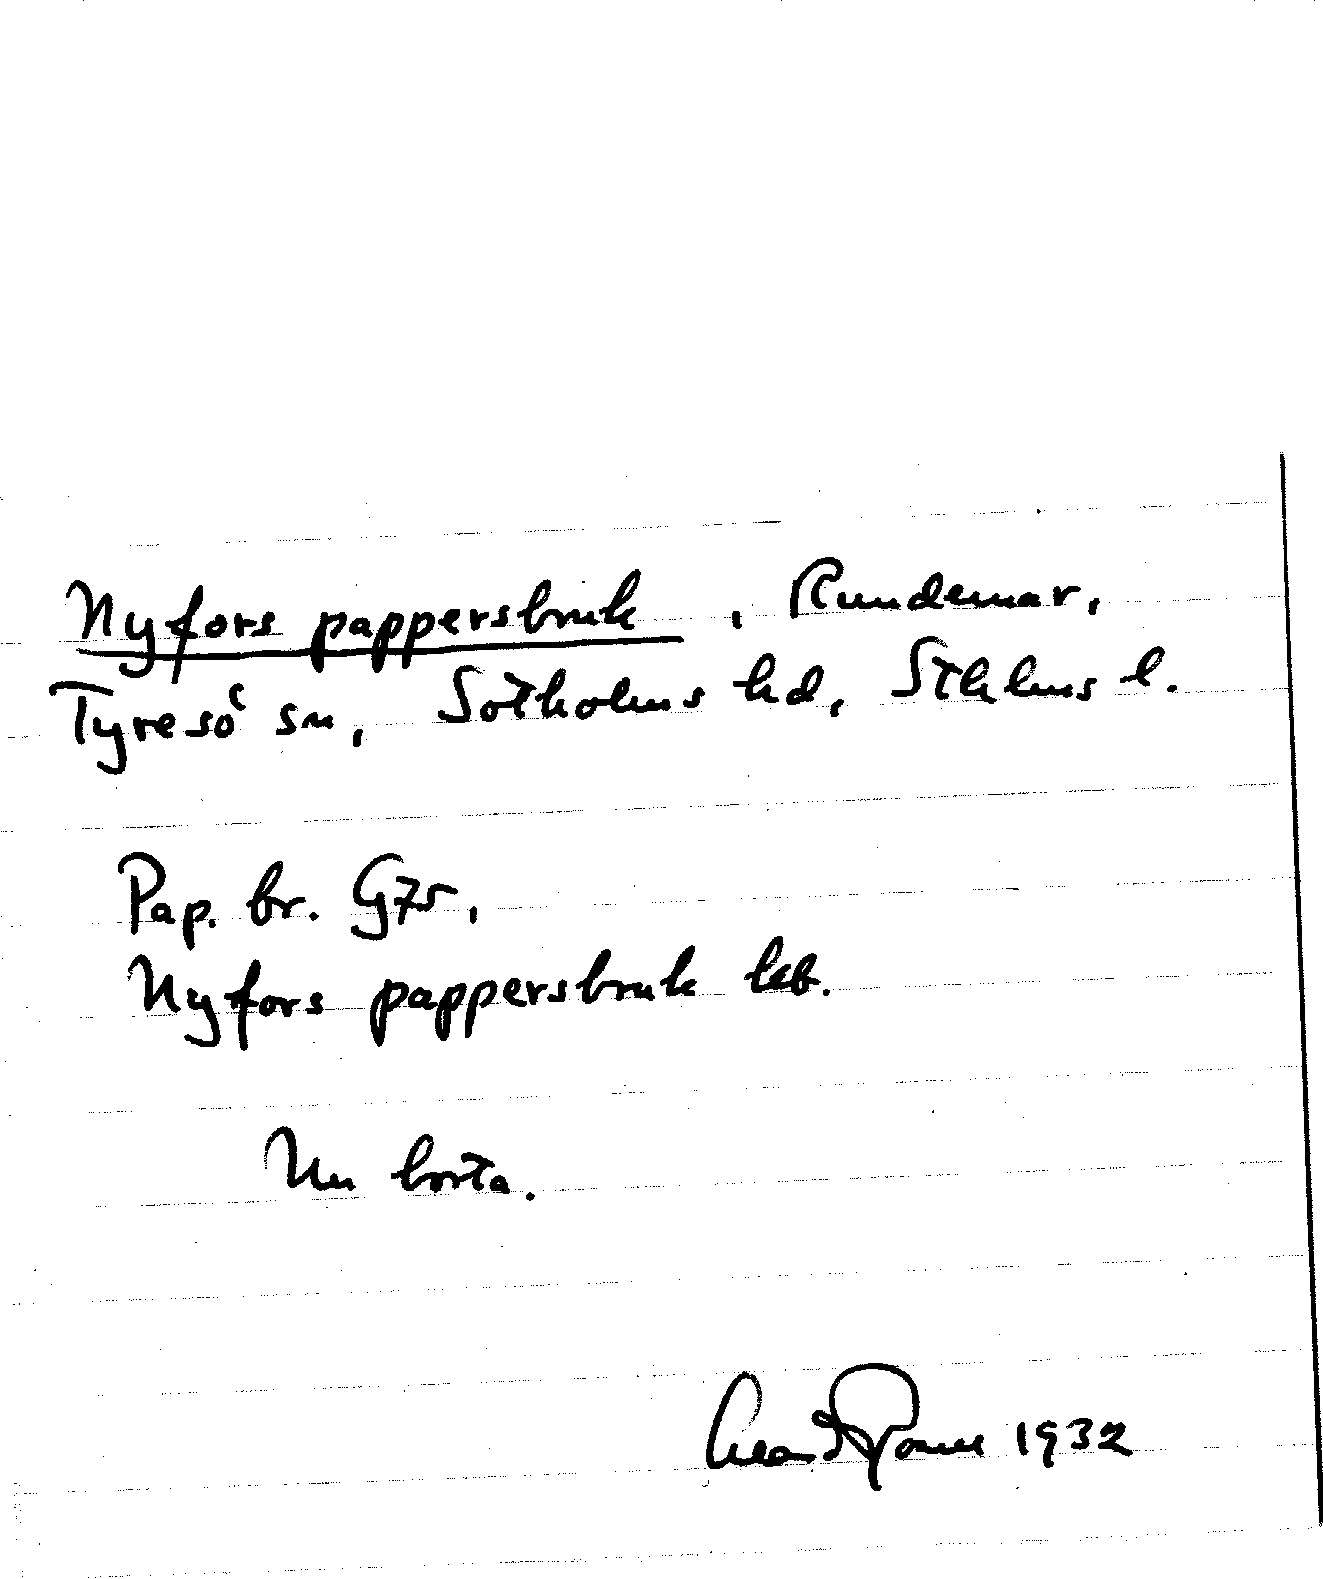 Nyfors pappersbruk, Kundemar,
Tyresö sn, Sotholms hd, Sthlms l.
Pap. br. G75,
Nyfors pappersbruk leb.
Nu borta.
1932